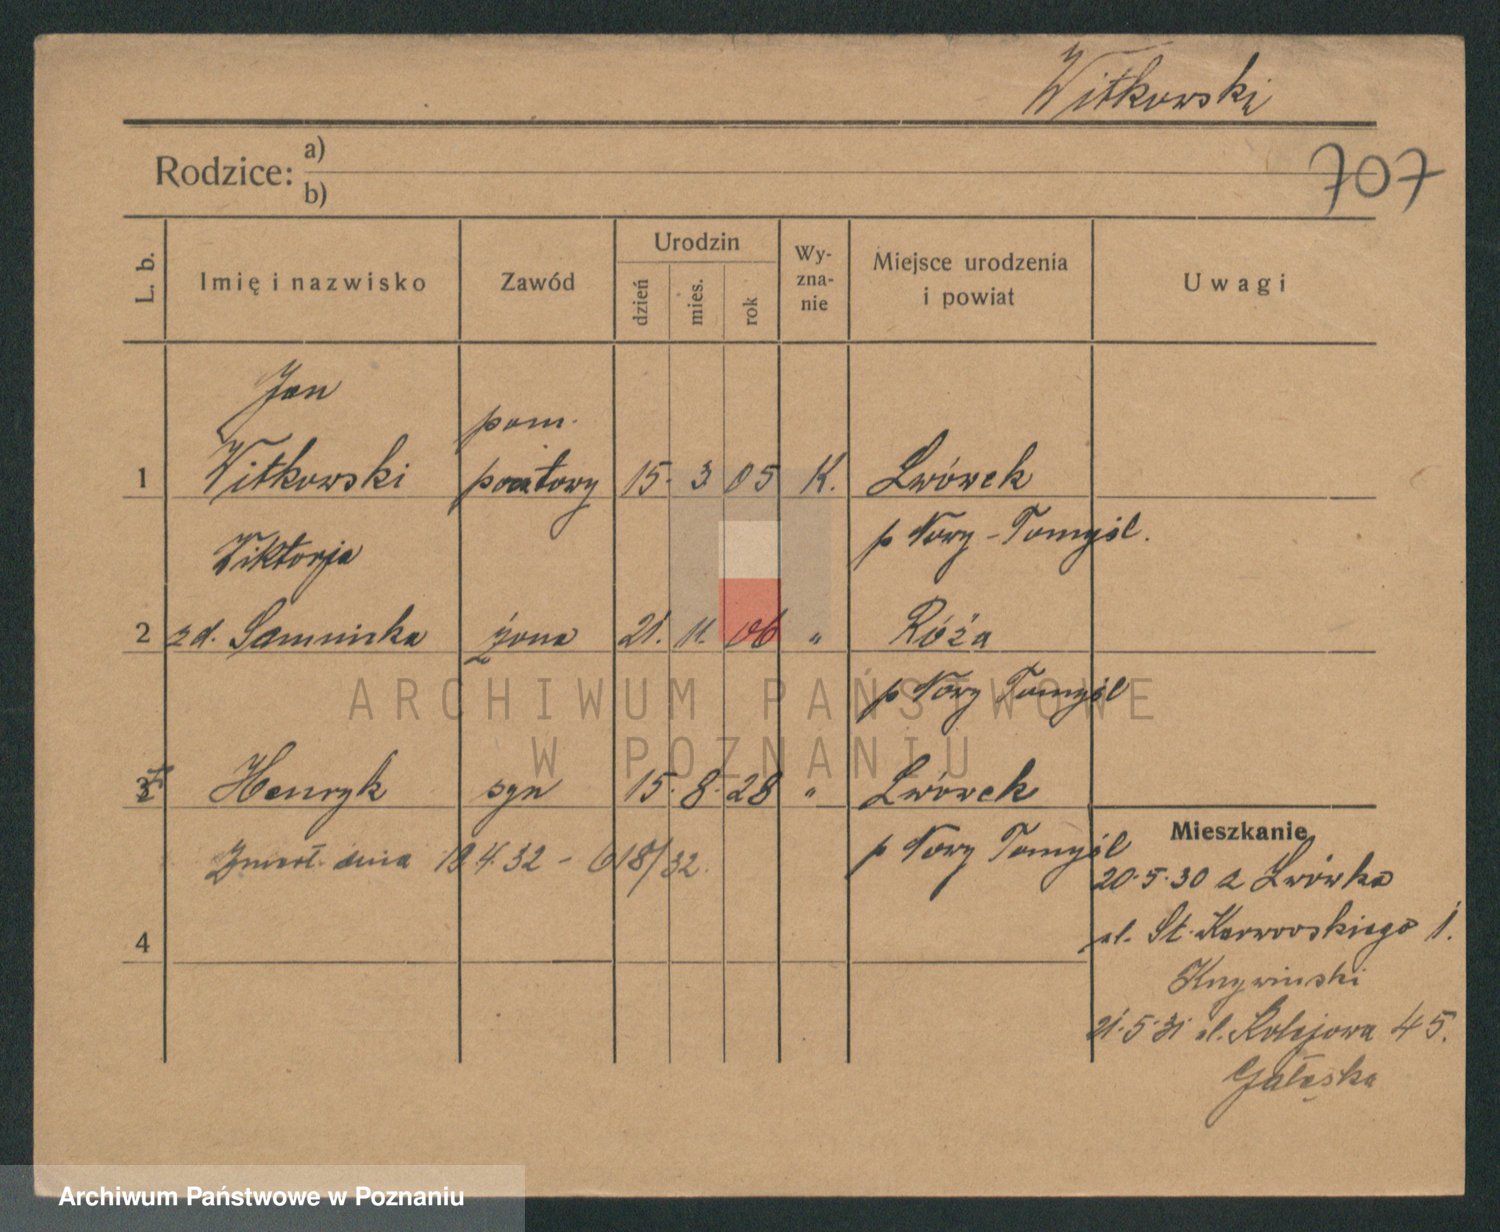 Witkowski
707
Rodzice: a)
b)
L. b.
Imię i nazwisko
Zawód
Urodzin
dzień
mies.
rok
Wy-
zna-
nie
Miejsce urodzenia
i powiat
Uwagi
Jan
pom.
1 Witkowski pocztowy 15. 3 05 K. Lwówek
p Nowy-Tomyśl.
Wiktorja
2 zd. żona 21. 11. 06 " Róża
p Nowy Tomyśl
3 Henryk syn 15. 8. 28 " Lwówek
p Nowy Tomyśl
Zmarł dnia 18 4. 32 - 618/32.
4
Mieszkanie
20.5.30 z Lwówka
ul. St. Karwowskiego 1.
21.5.31 ul. Kolejowa 45.
Gałęska
ARCHIWUM PAŃSTWOWE
W POZNANIU
Archiwum Państwowe w Poznaniu